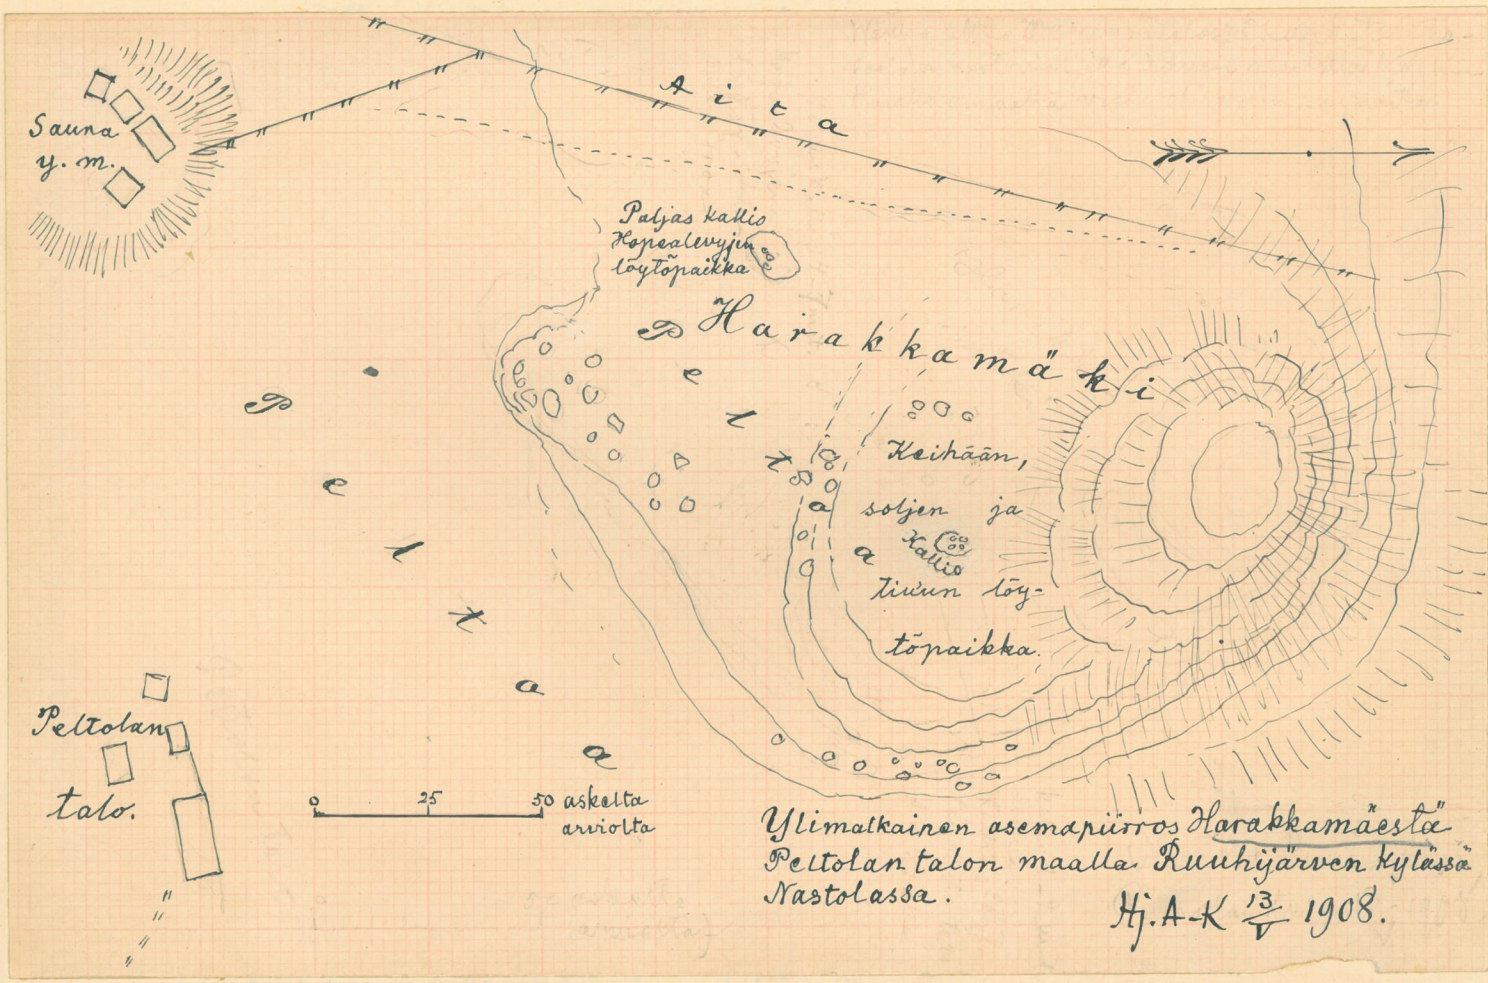 Aita
Sauna
y. m.
Paljas kallio
Hopealevyjen
löytöpaikka
Harakkamäki
Peltoa
Peltoa
Keihään,
soljen ja
Kallio
tiu'un löy-
töpaikka.
Peltolan
talo.
0 25 50 askelta
arviolta
Ylimalkainen asemapiirros Harakkamäestä
Peltolan talon maalla Ruuhijärven kylässä
Nastolassa.
Hj. A-K 13/V 1908.